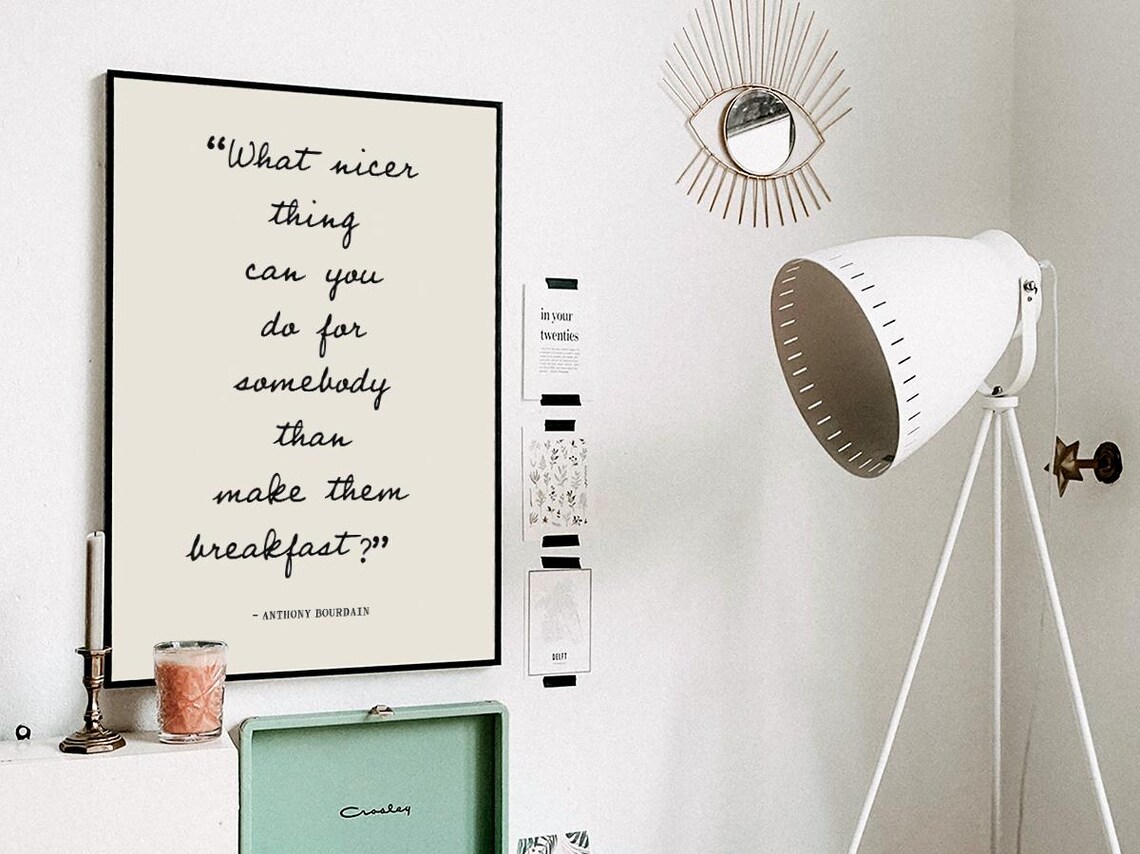 “What nicer
thing
can you
do for
somebody
than
make them
breakfast?”
- ANTHONY BOURDAIN
in your
twenties
DELFT
Crosley